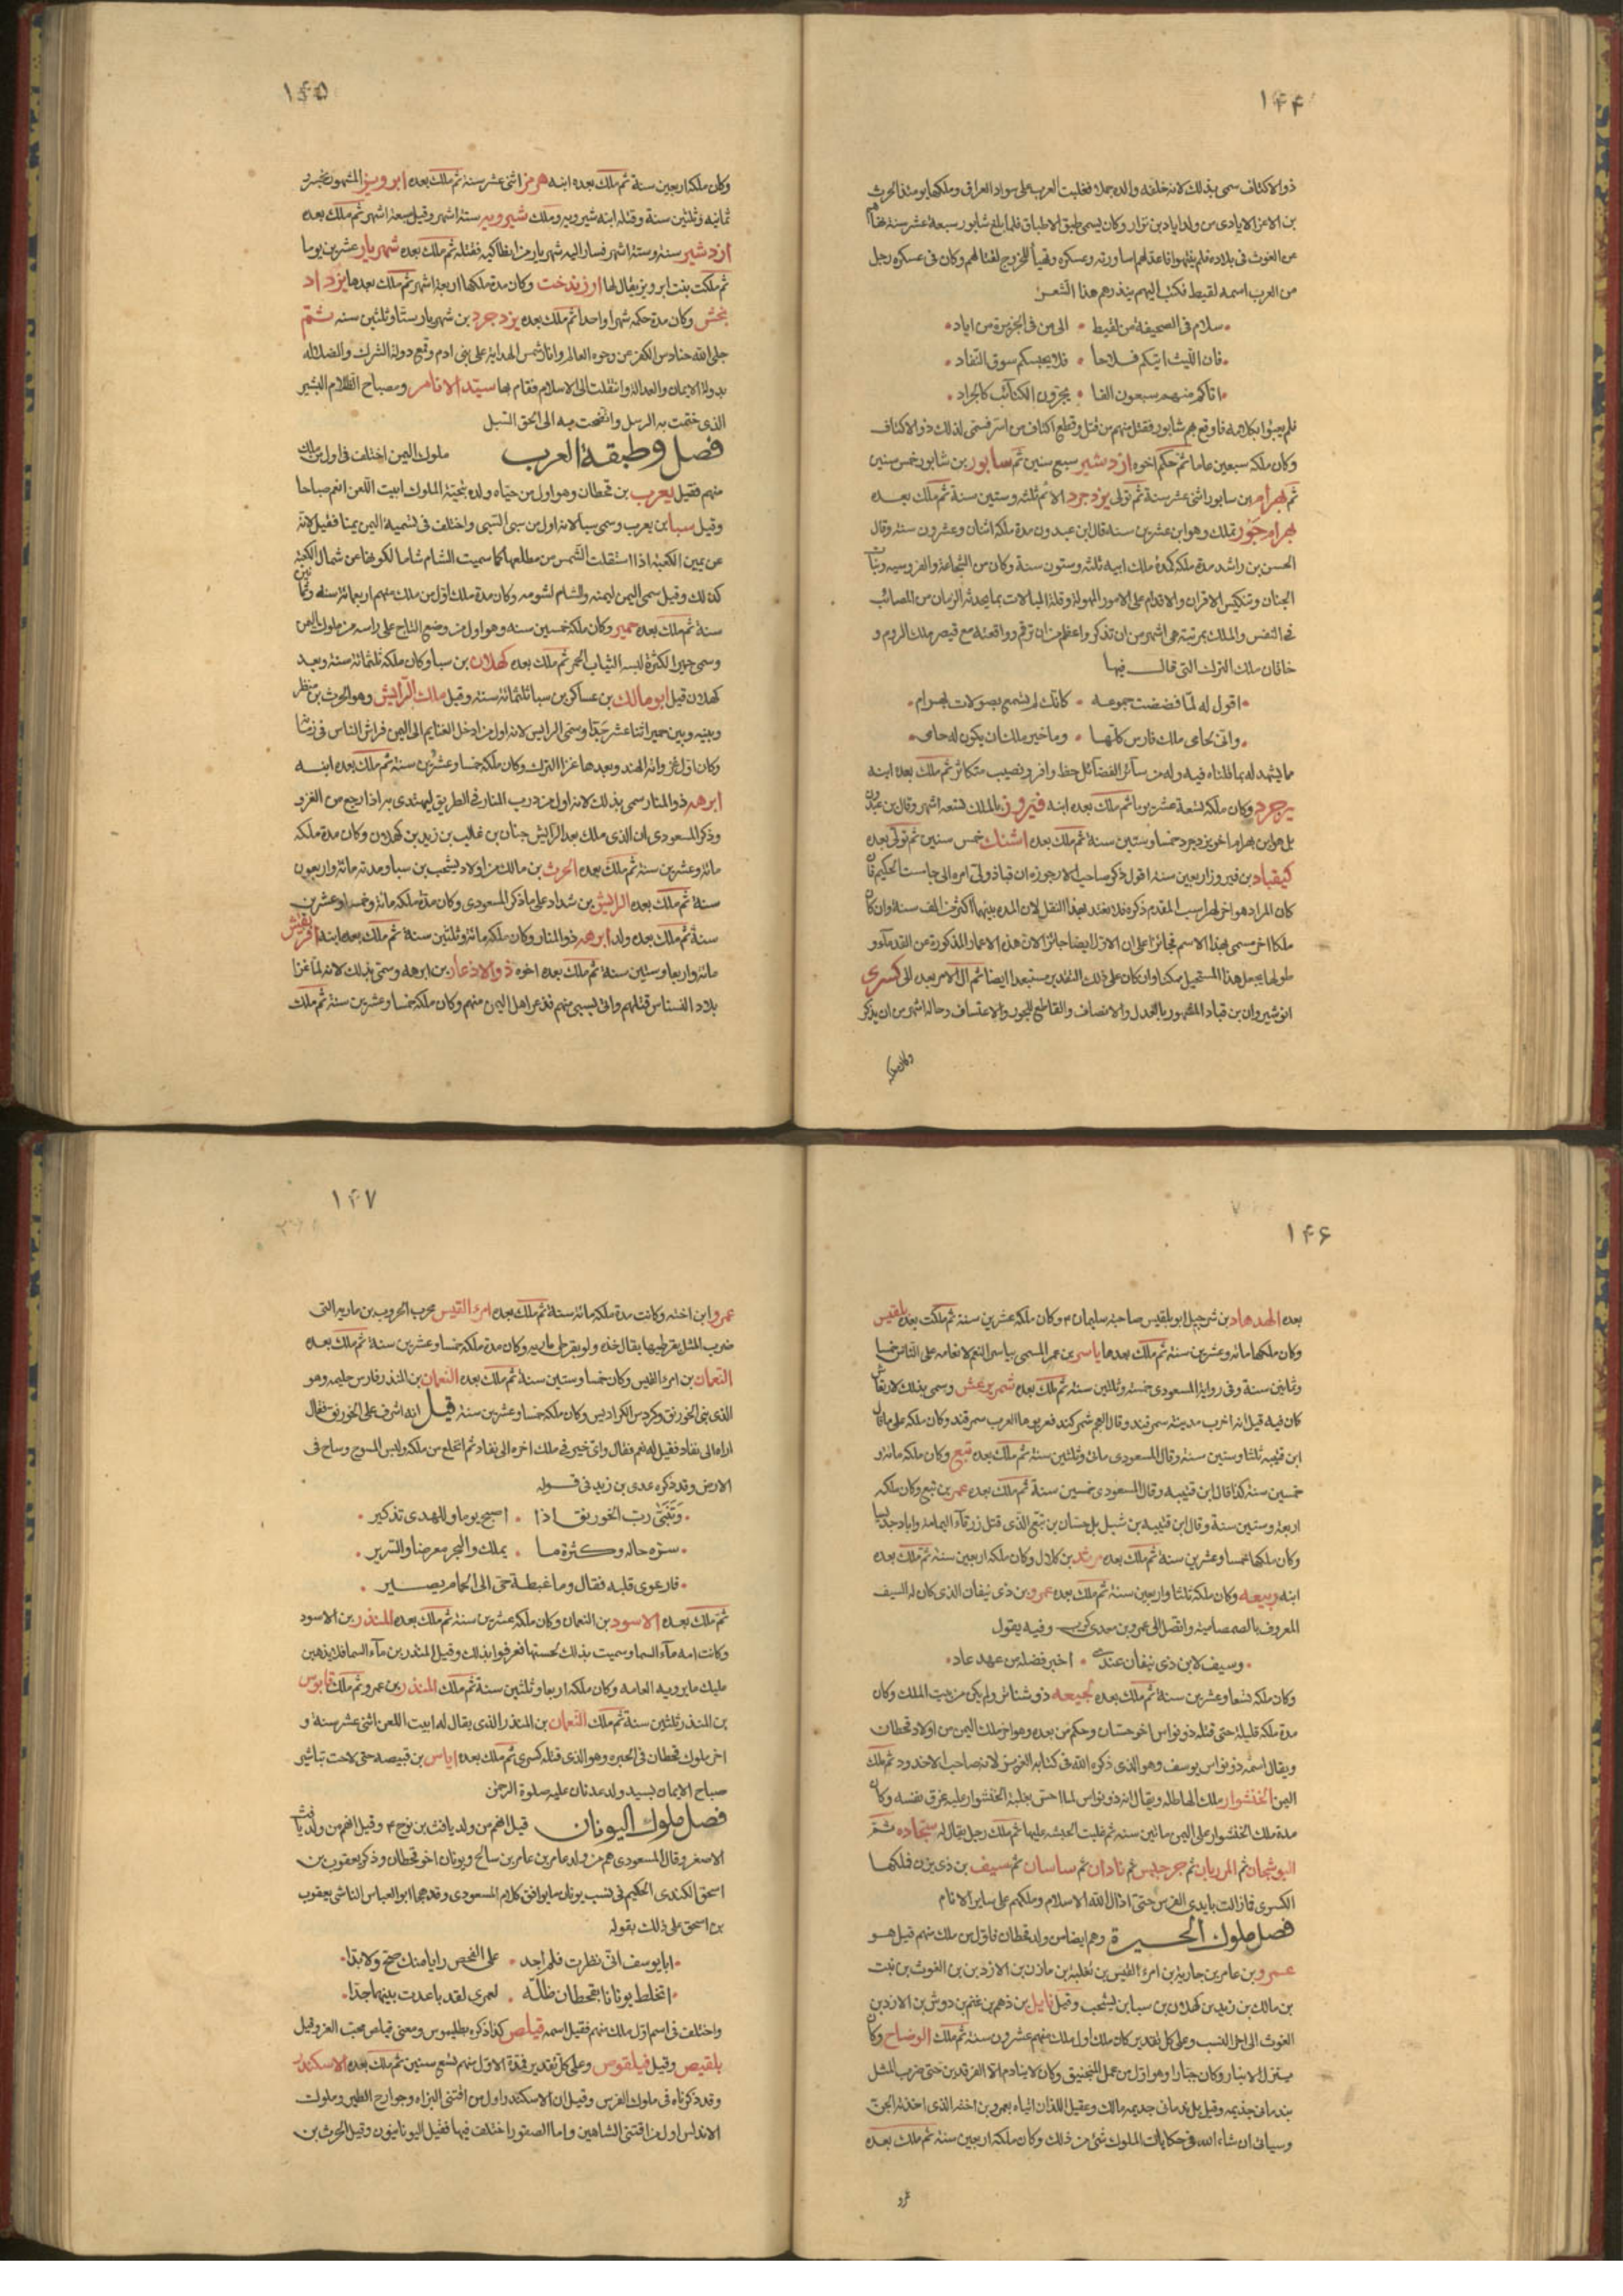 ١٤٤
ذو الاكتاف سمى بذلك لانه خلفه والده حملا فغلبت العرب على سواد العراق وملكها يومئذ الحرث
بن الاغر الايادى من ولد اياد بن نزار وكان يسمى طبق الاطباق فلما بلغ شابور سبعة عشر سنة
من العرب اسمه لقيط فكتب اليهم ينذرهم هذا الشعر
سلام فى الصحيفة من لقيط • الى من فى الجزيرة من اياد
فان الليث اتيكم فلاحا • فلا يحبسكم سوق النفاد
اتاكم منهم سبعون الفا • يجرون الكتائب كالجراد
فلم يعبؤا بكلامه فاوقع بهم شابور فقتل منهم من قتل وقطع اكتاف من اسر فسمى لذلك ذو الاكتاف
وكان ملكه سبعين عاما ثم حكم اخوه ازدشير سبع سنين ثم سابور بن شابور خمس سنين
ثم بهرام بن سابور اثنى عشر سنة ثم تولى يزدجرد الاثم ثلثه وستين سنة ثم ملك بعده
بهرام جور تملك وهو ابن عشرين سنه قال ابن عبدون مدة ملكه اثنان وعشرون سنه وقال
الحسن بن راشد مدة ملكه كمدة ملك ابيه ثلثه وستون سنة وكان من الشجاعة والفروسيه وثبات
الجنان وتنكيس الاقران والاقدام على الامور المهولة وقلة المبالات بما يحدثه الزمان من المصائب
فى النفس والملك بمرتبة هى اشهر من ان تذكر واعظم من ان ترقم وواقعته مع قيصر ملك الروم و
خاقان ملك الترك التى قال فيها
اقول له لما فضضت جموعه • كانك لم تسمع بصولات بهرام
وانى لحامى ملك فارس كلها • وما خير ملك ان يكون له حامى
مما يشهد له بما قلناه فيه وله من سائر الفضائل حظ وافر ونصيب متكاثر ثم ملك بعده ابنه
يزجرد وكان ملكه تسعة عشر يوما ثم ملك بعده ابنه فيروز بالملك تسعه اشهر وقال بن عبدون
بل هو ابن بهرام اخو يزدجرد خمسا وستين سنة ثم ملك بعده اشنك خمس سنين ثم تولى بعده
كيقباد بن فيروز اربعين سنه اقول ذكر صاحب الارجوزه ان قباذ ولى امره الى جاماست الحكيم فان
كان المراد هو اخو لهراسب المقدم ذكره فلا نعتد بهذا النقل لان المده بينهما اكثر من الف سنة وان كان
ملكا اخر سمى بهذا الاسم فجائز على ان الاول ايضا جائز الان هذه الاعمار المذكورة عن القدماء و
طولها يجعل هذا المستحيل ممكنا وان كان على ذلك التقدير مستبعدا ايضا ثم ال الامر بعد الى كسرى
انوشيروان بن قباد المشهور بالعدل والانصاف والقاطع للجور والاعتساف وحاله اشهر من ان يذكر
وكان ملكه
١٤٥
وكان ملكه اربعين سنة ثم ملك بعده ابنه هرمز اثنى عشر سنة ثم ملك بعده ابرويز المشهور بخسرو
ثمانيه وثلثين سنة وقتله ابنه شيرويه وملك شيرويه ستة اشهر وقيل سبعة اشهر ثم ملك بعده
ازدشير سنة وستة اشهر فسار اليه شهريار من انطاكيه فقتله ثم ملك بعده شهريار عشرين يوما
ثم ملكت بنت ابرويز يقال لها ارزندخت وكان مدة ملكها اربعة اشهر ثم ملك بعدها يزداد
بخش وكان مدة حكمه شهرا واحدا ثم ملك بعده يزدجرد بن شهريار ستا وثلثين سنه ثم
جلى الله حنادس الكفر من وجوه العالم وانار شمس الهداية على بنى ادم وقمع دولة الشرك والضلاله
بدولة الايمان والعدالة وانتقلت الى الاسلام فقام بها سيد الانام ومصباح الظلام البشير
الذى ختمت به الرسل واتضحت به الى الحق السبل
فصل وطبقة العرب ملوك اليمن اختلف فى اول من ملك
منهم فقيل يعرب بن قحطان وهو اول من حياه ولده بتحية الملوك ابيت اللعن انعم صباحا
وقيل سبا بن يعرب وسمى سبا لانه اول من سبى السبى واختلف فى تسمية اليمن يمنا فقيل لانه
عن يمين الكعبة اذا استقلت الشمس من مطلعها كما سميت الشام شاما لكونها عن شمال الكعبة
كذلك وقيل سمى اليمن ليمنه والشام لشومه وكان مدة ملك اول من ملك منهم اربعمائة سنة وثمانين
سنة ثم ملك بعده حمير وكان ملكه خمسين سنه وهو اول من وضع التاج على راسه من ملوك اليمن
وسمى حميرا لكثرة لبسه الثياب الحمر ثم ملك بعده كهلان بن سبا وكان ملكه ثلثمائة سنة وبعد
كهلان قيل ابو مالك بن عساكر بن سبا ثلثمائة سنه وقيل ملك الرايش وهو الحرث بن منظر
وبينه وبين حمير اثنا عشر جدا وسمى الرايش لانه اول من ادخل الغنايم الى اليمن فراش الناس فى
وكان اول غزواته الهند وبعدها غزا الترك وكان ملكه خمسا وعشرين سنة ثم ملك بعده ابنه
ابرهه ذو المنار سمى بذلك لانه اول من درب المنار فى الطريق ليهتدى به اذا رجع من الغزو
وذكر المسعودى ان الذى ملك بعد الرايش جنان بن غالب بن زيد بن كهلان وكان مدة ملكه
مائة وعشرين سنة ثم ملك بعده الحرث بن مالك من اولاد يشحب بن سبا ومدته مائة واربعون
سنة ثم ملك بعده الرايش بن شداد على ما ذكر المسعودى وكان مدة ملكه مائة وخمسا وعشرين
سنة ثم ملك بعده ولد ابرهه ذو المنار وكان ملكه مائة وثلثين سنة ثم ملك بعده ابنه افريقيش
مائة واربعا وستين سنة ثم ملك بعده اخوه ذو الاذعار بن ابرهه وسمى بذلك لانه لما غزا
بلاد النسناس قتلهم واتى بسبى منهم فذعر اهل اليمن منهم وكان ملكه خمسا وعشرين سنة ثم ملك
١٤٦
بعده الهدهاد بن شرحبيل ابو بلقيس صاحبة سليمان ع وكان ملكه عشرين سنة ثم ملكت بعده بلقيس
وكان ملكها مائة وعشرين سنة ثم ملك بعدها ياسر بن عمر المسمى بياسر النعم لانعامه على الناس خمسا
وثمانين سنة وفى رواية المسعودى خمسة وثلثين سنة ثم ملك بعده شمر يرعش وسمى بذلك لارتعاش
كان فيه قيل انه اخرب مدينة سمرقند وقال العجم شمر كند فعربوها العرب سمرقند وكان ملكه على ما قال
ابن قتيبه ثلثا وستين سنة وقال المسعودى مائة وثلثين سنة ثم ملك بعده تبع وكان ملكه مائة و
خمسين سنة كذا قال ابن قتيبه وقال المسعودى خمسين سنة ثم ملك بعده عمر بن تبع وكان ملكه
اربعة وستين سنة وقال ابن قتيبه بن شبل بل حسان بن تبع الذى قتل زرقاء اليمامة واباد جديسا
وكان ملكها خمسا وعشرين سنة ثم ملك بعده مرثد بن كلال وكان ملكه اربعين سنة ثم ملك بعده
ابنه ربيعه وكان ملكه ثلثا واربعين سنة ثم ملك بعده عمرو بن ذى نيفان الذى كان له السيف
المعروف بالصمصامة واتصل الى عمرو بن معدى كرب وفيه يقول
وسيف لابن ذى نيفان عندى • اخبر فضله من عهد عاد
وكان ملكه تسعا وعشرين سنة ثم ملك بعده لجيعه ذو شناتر ولم يكن من بيت الملك وكان
مدة ملكه قليلة حتى قتله ذو نواس اخو حسان وحكم من بعده وهو اخر ملك اليمن من اولاد قحطان
ويقال اسمه ذو نواس يوسف وهو الذى ذكره الله فى كتابه العزيز لانه صاحب الاخدود ثم ملك
اليمن الخنشوار ملك الهاطله ويقال انه ذو نواس لما احس بغلبة الخنشوار عليه غرق نفسه وكان
مدة ملك الخنشوار على اليمن مائتين سنه ثم غلبت الحبشه عليها ثم ملك رجل يقال له سجاده ثم
النوشجان ثم المرزبان ثم جرجيس ثم نادان ثم ساسان ثم سيف بن ذى يزن فملكها
الكسرى فما زالت بايدى الفرس حتى اذال الله الاسلام وملكهم على ساير الانام
فصل ملوك الحيرة وهم ايضا من ولد قحطان فاول من ملك منهم قيل هو
عمرو بن عامر بن جارية بن امرء القيس بن ثعلبة بن مازن بن الازد بن بن الغوث بن نبت
بن مالك بن زيد بن كهلان بن سبا بن يشحب وقيل نايل بن ذهم بن غنم بن دوش بن الازد بن
الغوث الى اخر النسب وعلى كل تقدير كان ملك اول ملك منهم عشرون سنة ثم ملك الوضاح وكان
ينزل الانبار وكان جبارا وهو اول من عمل المنجنيق وكان لا ينادم الا الفرقدين حتى ضرب المثل
بندمانى جذيمه وقيل بل ندمانى جذيمه مالك وعقيل اللذان اتياه بعمرو بن اخته الذى اخذته الجن
وسيأتى ان شاء الله فى حكايات الملوك شئ من ذلك وكان ملكه اربعين سنة ثم ملك بعده
عمرو
١٤٧
عمرو ابن اخته وكانت مدة ملكه مائة سنة ثم ملك بعده امرء القيس محرب الحروب بن ماريه التى
ضرب المثل بقرطيها يقال خذه ولو بقرطى ماريه وكان مدة ملكه خمسا وعشرين سنة ثم ملك بعده
النعمان بن امرء القيس وكان خمسا وستين سنة ثم ملك بعده النعمان بن المنذر فارس حليمه وهو
الذى بنى الخورنق وكردس الكراديس وكان ملكه خمسا وعشرين سنة قيل انه اشرف على الخورنق فقال
اراه الى نفاد فقيل له نعم فقال واى خير فى ملك اخره الى نفاد ثم انخلع من ملكه ولبس المسوح وساح فى
الارض وقد ذكره عدى بن زيد فى قوله
وتبنى رب الخورنق اذا • اصبح يوما وللهدى تذكير
سره حاله وكثرة ما • يملك والبحر معرضا والسرير
فارعوى قلبه فقال وما غبطة حى الى الحمام يصير
ثم ملك بعده الاسود بن النعمان وكان ملكه عشرين سنة ثم ملك بعده المنذر بن الاسود
وكانت امه ماء السما وسميت بذلك لحسنها فعرفوا بذلك وقيل المنذر بن ماء السما فلا يذهبن
عليك ما يرويه العامه وكان ملكه اربعا وثلثين سنة ثم ملك المنذر بن عمرو ثم ملك قابوس
بن المنذر ثلثين سنة ثم ملك النعمان بن المنذر الذى يقال له ابيت اللعن اثنى عشر سنة و
اخر ملوك قحطان فى الحيره وهو الذى قتله كسرى ثم ملك بعده اياس بن قبيصه حتى لاحت تباشير
صباح الايمان بسيد ولد عدنان عليه صلوة الرحمن
فصل ملوك اليونان قيل انهم من ولد يافث بن نوح ع وقيل انهم من ولد يافث
الاصغر وقال المسعودى هم من ولد عامر بن عامر بن سالخ ويونان اخو قحطان وذكر يعقوب بن
اسحق الكندى الحكيم فى نسب يونان ما يوافق كلام المسعودى وقد هجا ابو العباس الناشى يعقوب
بن اسحق على ذلك بقوله
ابا يوسف انى نظرت فلم اجد • على الفحص رايا منك صح ولا بدا
اتخلط يونانا بقحطان ظلة • لعمرى لقد باعدت بينهما جدا
واختلف فى اسم اول ملك منهم فقيل اسمه قيلص كذا ذكره بطليموس ومعنى قيلص محب العز وقيل
بلقيص وقيل فيلقوس وعلى كل تقدير فمدة الاول منهم تسع سنين ثم ملك بعده الاسكندر
وقد ذكرناه فى ملوك الفرس وقيل ان الاسكندر اول من اقتنى البزاه وجوارح الطير وملوك
الاندلس اول من اقتنى الشاهين واما الصقور اختلف فيها فقيل اليونانيون وقيل الحرث بن